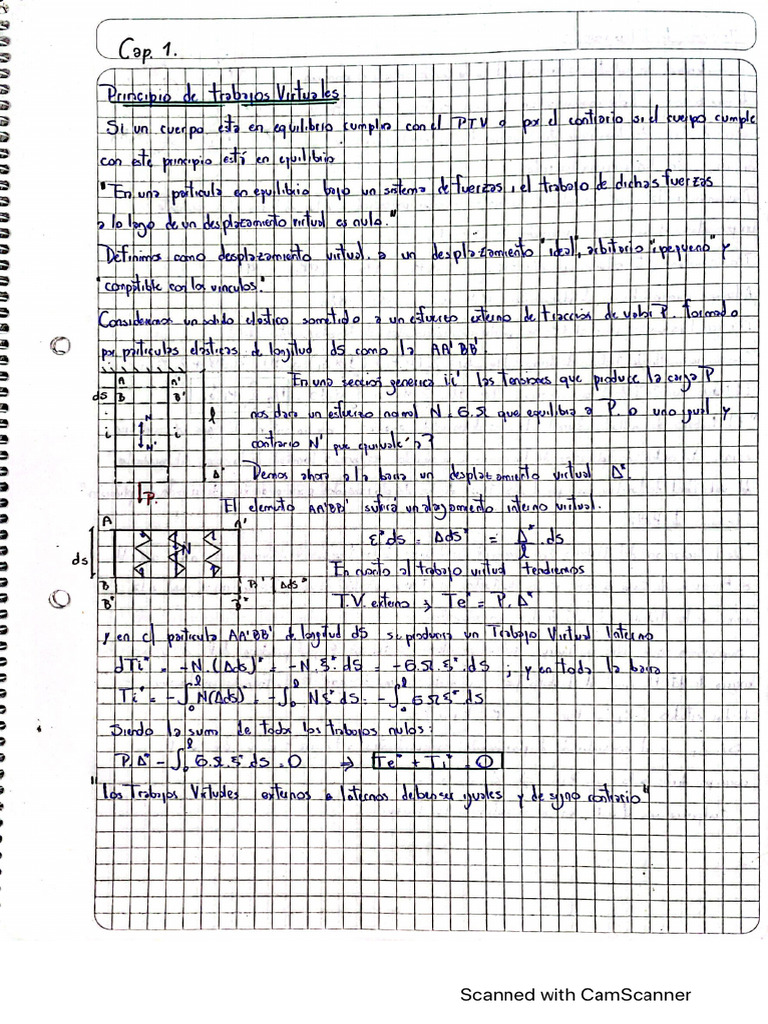 Cap. 1.
Principio de trabajos Virtuales
Si un cuerpo está en equilibrio cumplira con el PTV o por el contrario si el cuerpo cumple
con este principio está en equilibrio
"En una particula en equilibrio bajo un sistema de fuerzas, el trabajo de dichas fuerzas
a lo largo de un desplazamiento virtual es nulo."
Definimos como desplazamiento virtual a un desplazamiento "ideal", arbitrario "pequeño" y
"compatible con los vinculos."
Consideremos un solido elástico sometido a un esfuerzo externo de tracción de valor P. formado
por particulas elásticas de longitud ds como la AA'BB'.
A A'
ds B B'
l
En una sección generica ii' las tensiones que produce la carga P
N
i i
N'
nos dara un esfuerzo normal N. б.Ω que equilibra a P. o uno igual y
contrario N' que equivale a?
Δ*
Demos ahora a la barra un desplazamiento virtual Δ*
P.
El elemento AA'BB' sufrirá un alargamiento interno virtual.
A A'
N
ds
ε*ds = Δds* = Δ*/l . ds
B B' Δds*
B* B*
En cuanto al trabajo virtual tendremos
T.V. externo → Te* = P.Δ*
y en el particula AA'BB' de longitud ds se producira un Trabajo Virtual Interno
dTi* = -N.(Δds)* = -N.ξ*ds = -б.Ω.ξ*.ds ; y en toda la barra
Ti* = -∫₀ˡ N(Δds)* = -∫₀ˡ Nξ*ds = -∫₀ˡ бΩξ*ds
Siendo la suma de todos los trabajos nulos:
P.Δ* - ∫₀ˡ б.Ω.ξ*ds = 0 ⇒ Te* + Ti* = 0
"Los Trabajos Virtuales externos e Internos deben ser iguales y de signo contrario"
Scanned with CamScanner